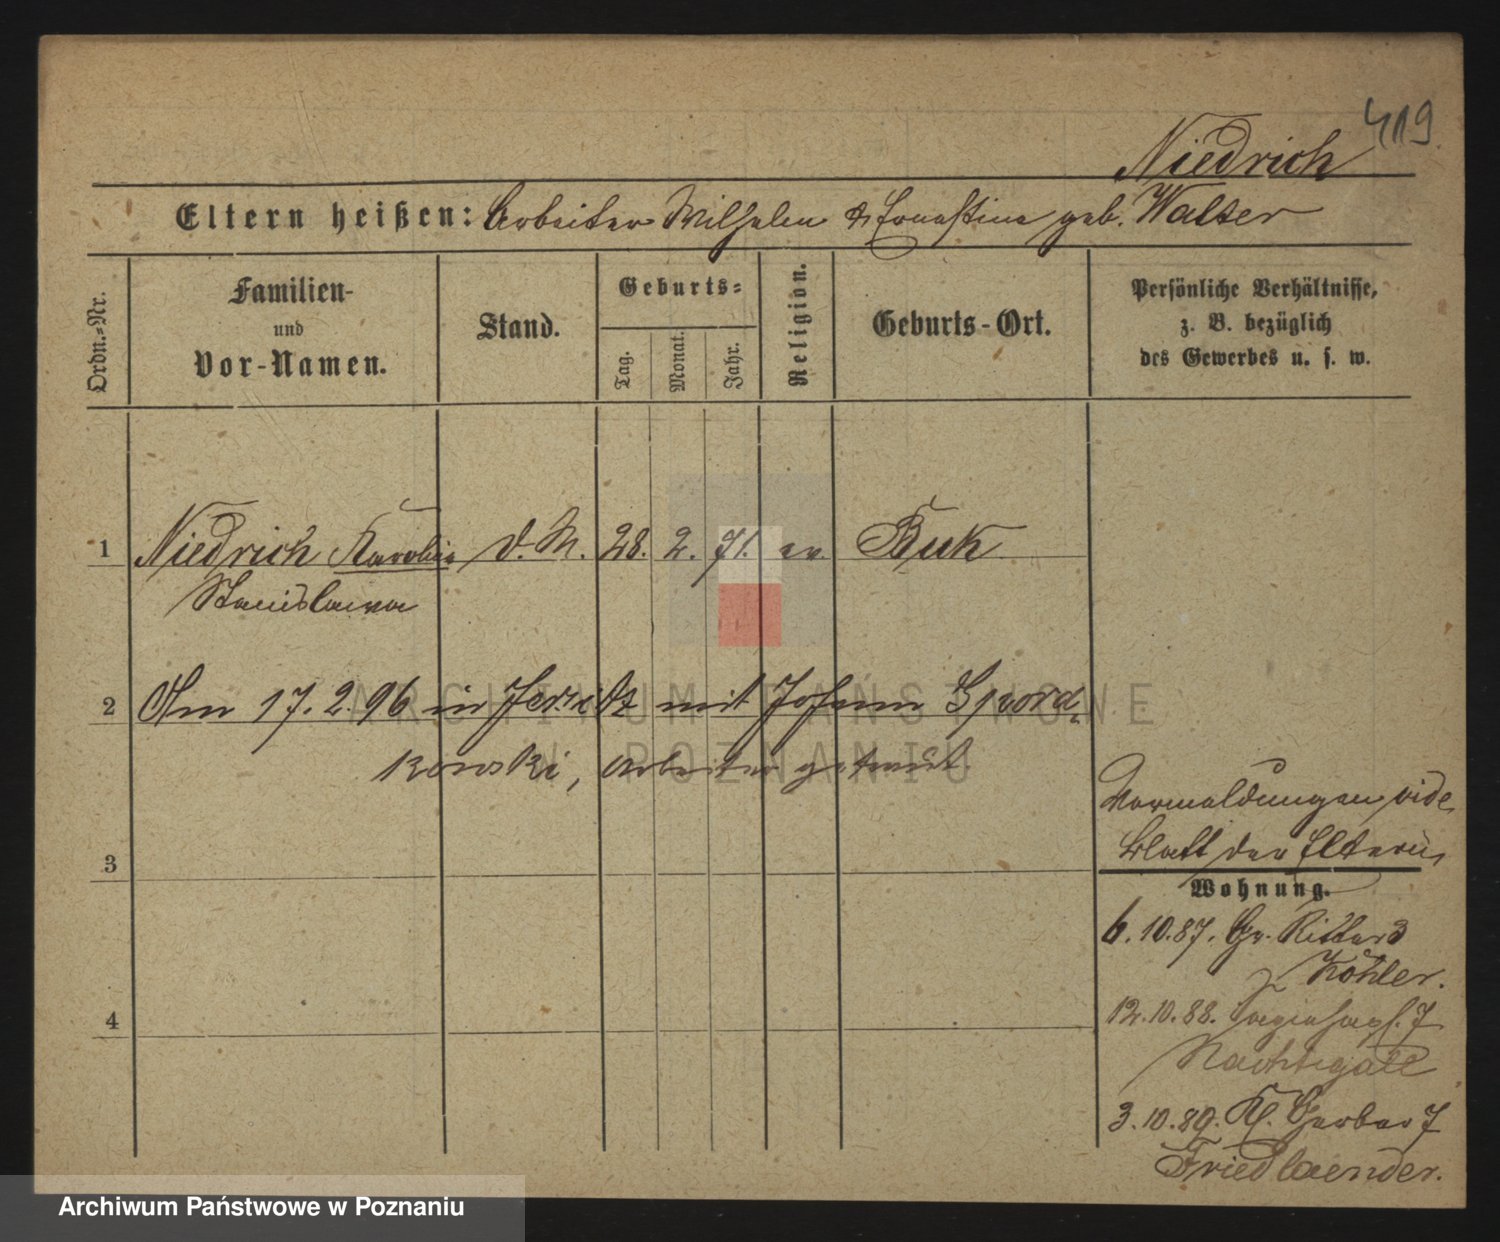 419
Niedrich
Eltern heißen: Arbeiter Wilhelm & Ernestine geb. Walter
Ordn.-Nr.
Familien-
und
Vor-Namen.
Stand.
Geburts-
Tag.
Monat.
Jahr.
Religion.
Geburts-Ort.
Persönliche Verhältnisse,
z. B. bezüglich
des Gewerbes u. s. w.
1 Niedrich Karolin d. M. 28. 2. 71. ev. Buk
Stanislawa
2 Am 17. 2. 96 in Jersitz mit Johann
kowski, Arbeiter getraut.
3
4
Vormeldungen vide
Blatt der Eltern
Wohnung.
6. 10. 87. Gr. Ritter 3
Köhler.
12. 10. 88. 7
Nachtigall
3. 10. 89. Kl. Gerber 7
Friedlaender.
ARCHIWUM PAŃSTWOWE
W POZNANIU
Archiwum Państwowe w Poznaniu